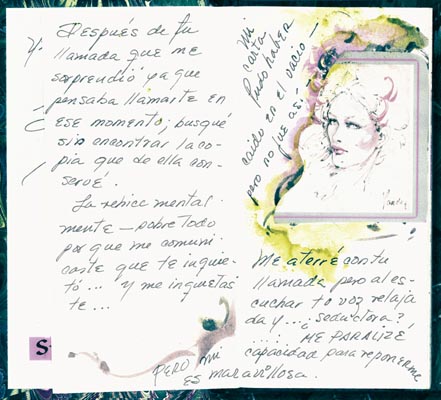 Después de tu
llamada que me
sorprendió ya que
pensaba llamarte en
ese momento; busqué
sin encontrar la co
pia que de ella con-
servé.
La rehice mental
mente — sobre todo
por que me comuni
caste que te inquie-
tó... Y me inquietas
te...
Mi
carta
pudo haber
caído en el vacío —
pero no fue así.
Me aterré con tu
llamada pero al es-
cuchar tu voz relaja
da y... ¿seductora?
....: ME PARALIZÉ
PERO mi
capacidad para reponerme
ES maravillosa.
S